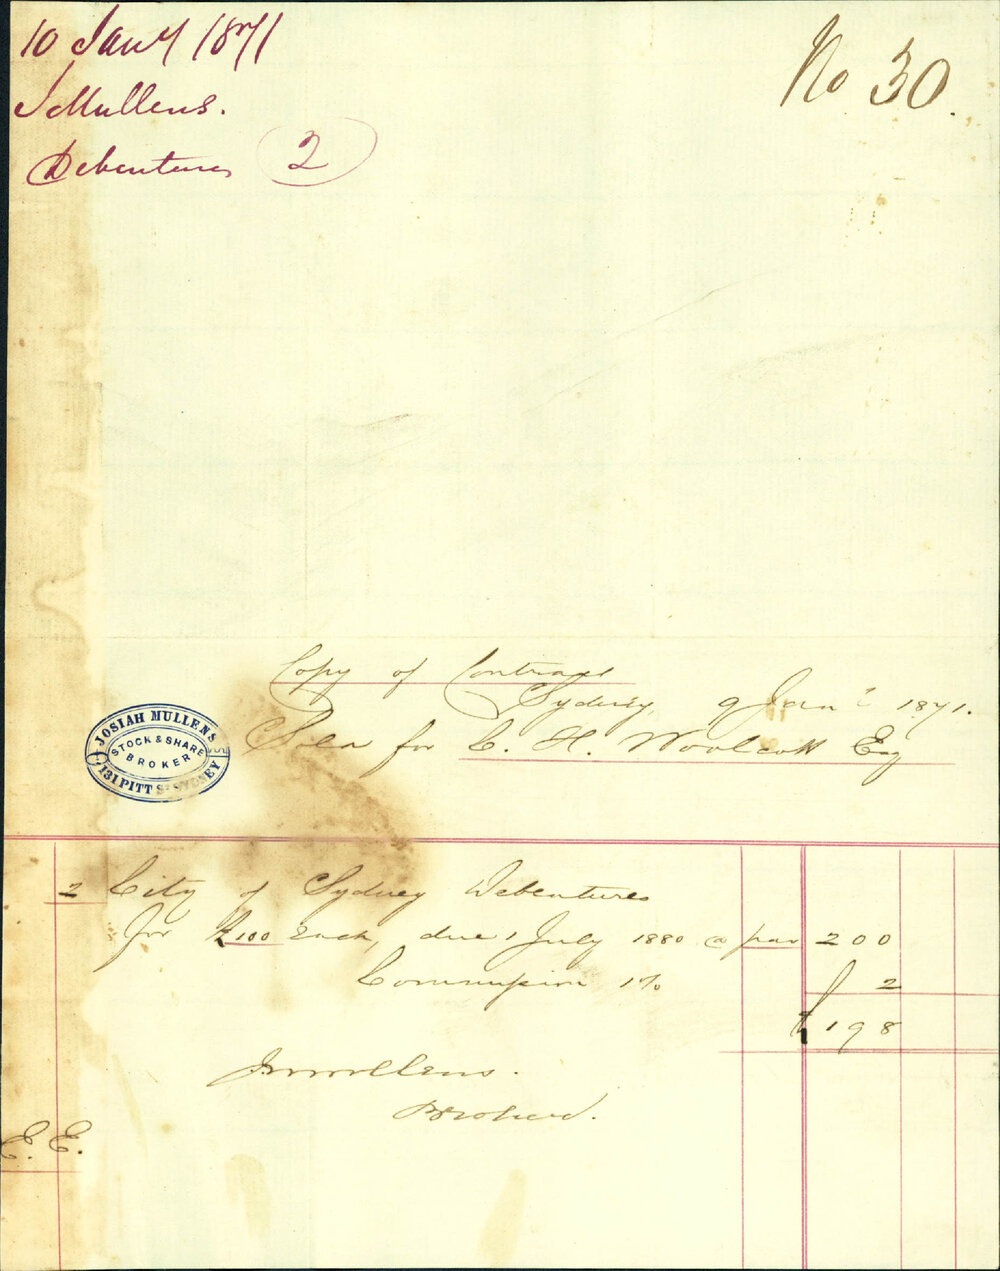 10 Jany 1871
J Mullens.
Debentures 2
No 30.
Copy of Contract
Sydney, 9 Jany 1871.
Sold for C. H. Woolcott Esq
JOSIAH MULLENS
STOCK & SHARE
BROKER
131 PITT ST SYDNEY
2 City of Sydney Debentures
for £100 each, due 1 July 1880 @ par 200
Commission 1% 2
£ 198
J Mullens.
Broker.
E. E.